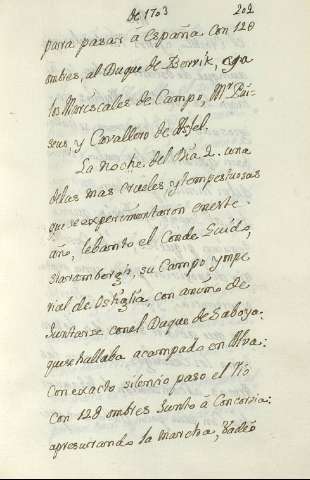 de 1703 202
para pasar â España con 128
ombres, al Duque de Bervik, oya
los Mariscales de Campo, Mr. Pui-
seus, y Cavallero de Asfel.
La noche del Dia 2. una
delas mas crueles, y tempestuosas
que se experimentaron eneste
año, lebantò el Conde Guido,
Starambergh, su Campo ympe
rial de Ostiglia, con animo de
Juntarse con el Duque de Saboya:
que se hallaba acampado en Alva:
con exacto silencio paso el Rio
con 128 ombres Junto â Concordia:
apresurando la marcha, Vadeò